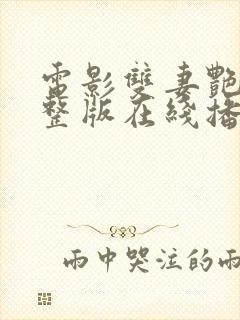 電影雙妻艷
整版在綫播
雨中哭泣的雨